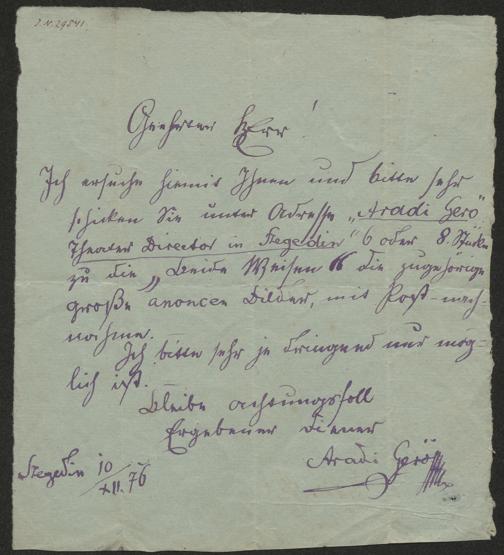 I.N. 29541
Geehrter Herr!
Ich ersuche hiemit Ihnen und bitte sehr
schicken Sie unter Adresse „Aradi Gerö"
Theater Director in Szegedin" 6 oder 8. Stücke
zu die „beide Waisen" die zugehörige
große anoncen Bilder, mit Post-nach-
nahme.
Ich bitte sehr je dringend nur mög-
lich ist.
Bleibe achtungsfoll
Ergebener Diener
Aradi Gerö
Szegedin 10/XII. 76